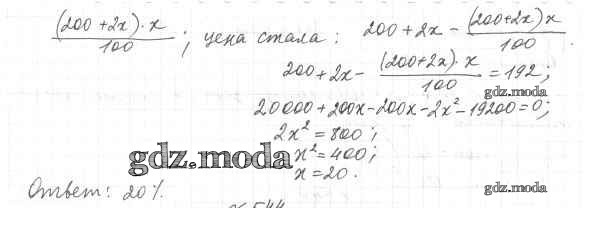 (200 + 2x) · x / 100 ; цена стала : 200 + 2x - (200+2x) x / 100
200 + 2x - (200+2x) · x / 100 = 192 ;
gdz.moda
20000 + 200x - 200x - 2x² - 19200 = 0 ;
2x² = 800 ;
gdz.moda x² = 400 ;
x = 20 .
Ответ : 20 % . gdz.moda